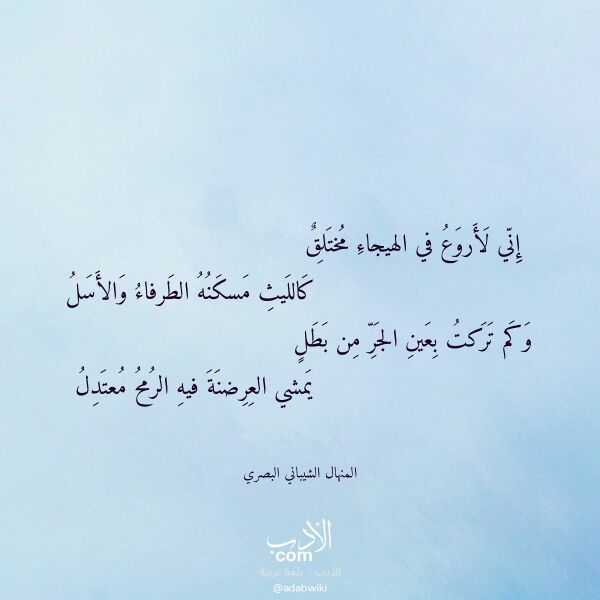 إِنّي لَأَروَعُ في الهيجاءِ مُختَلِقٌ
كَاللَيثِ مَسكَنُهُ الطَرفاءُ وَالأَسَلُ
وَكَم تَرَكتُ بِعَينِ الجَرِّ مِن بَطَلٍ
يَمشي العِرِضنَةَ فيهِ الرُمحُ مُعتَدِلُ
المنهال الشيباني البصري
الأدب
com
الأدب .. بلغة عربية
@adabwiki